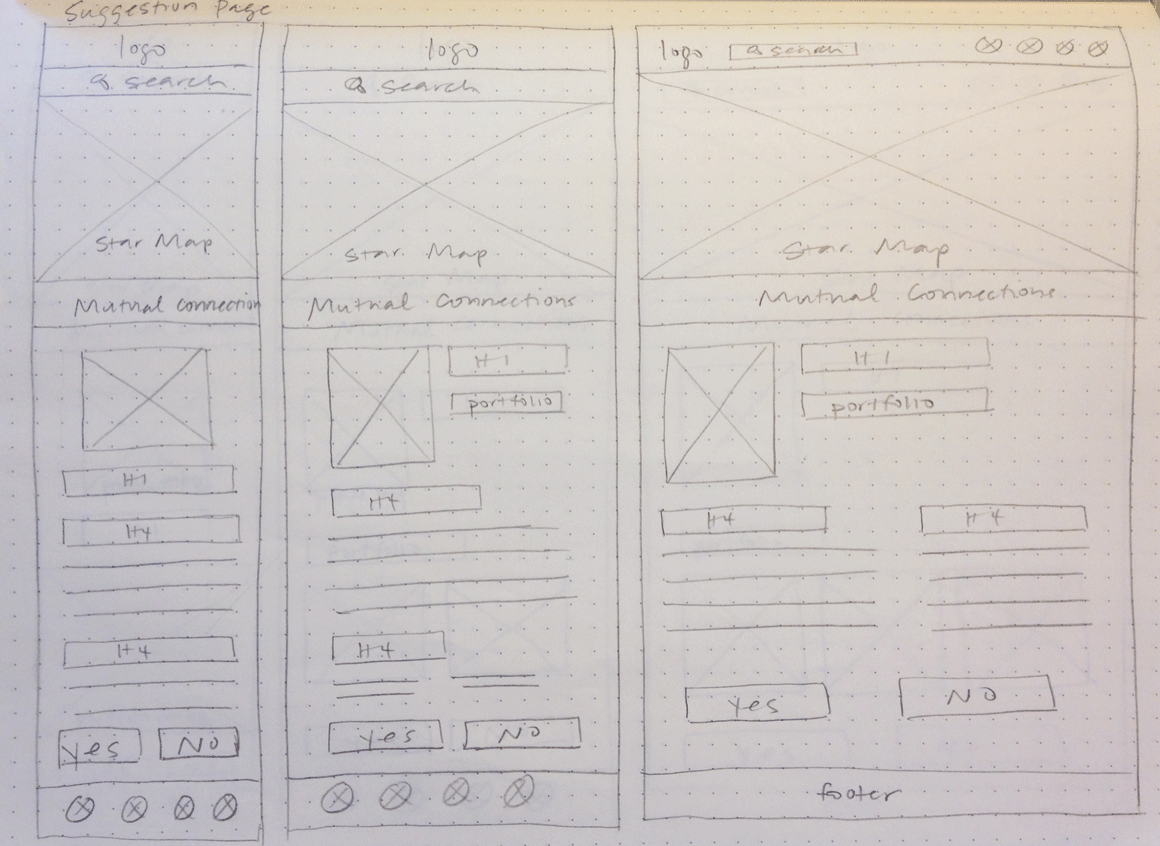 Suggestion Page
logo
search
Star Map
Mutual connection
H1
H4
H4
yes
No
logo
search
Star Map
Mutual Connections
H1
portfolio
H4
H4
yes
No
logo
search
Star Map
Mutual Connections
H1
portfolio
H4
H4
yes
No
footer